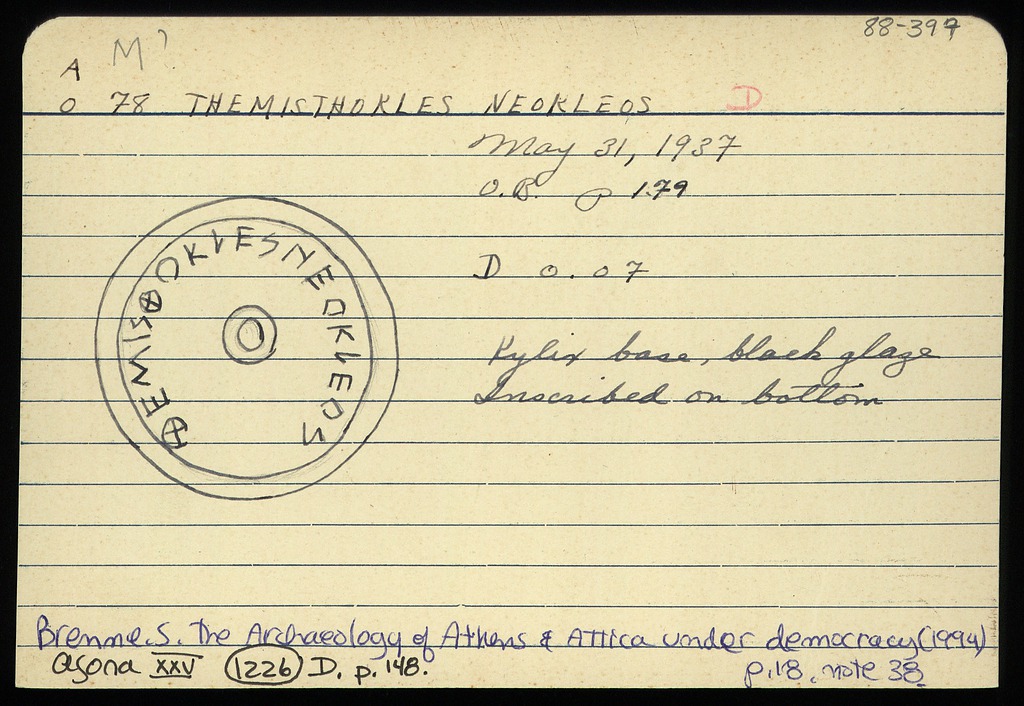 88-397
M?
A
O 78 THEMISTHOKLES NEOKLEOS D
May 31, 1937
O.B. p 179
D 0.07
ⴲEMISⴲOKLESNEOKLEOS
Kylix base, black glaze
Inscribed on bottom
Brenne.S. The Archaeology of Athens & Attica under democracy(1994)
agora XXV 1226 D. p.148.
p.18, note 38